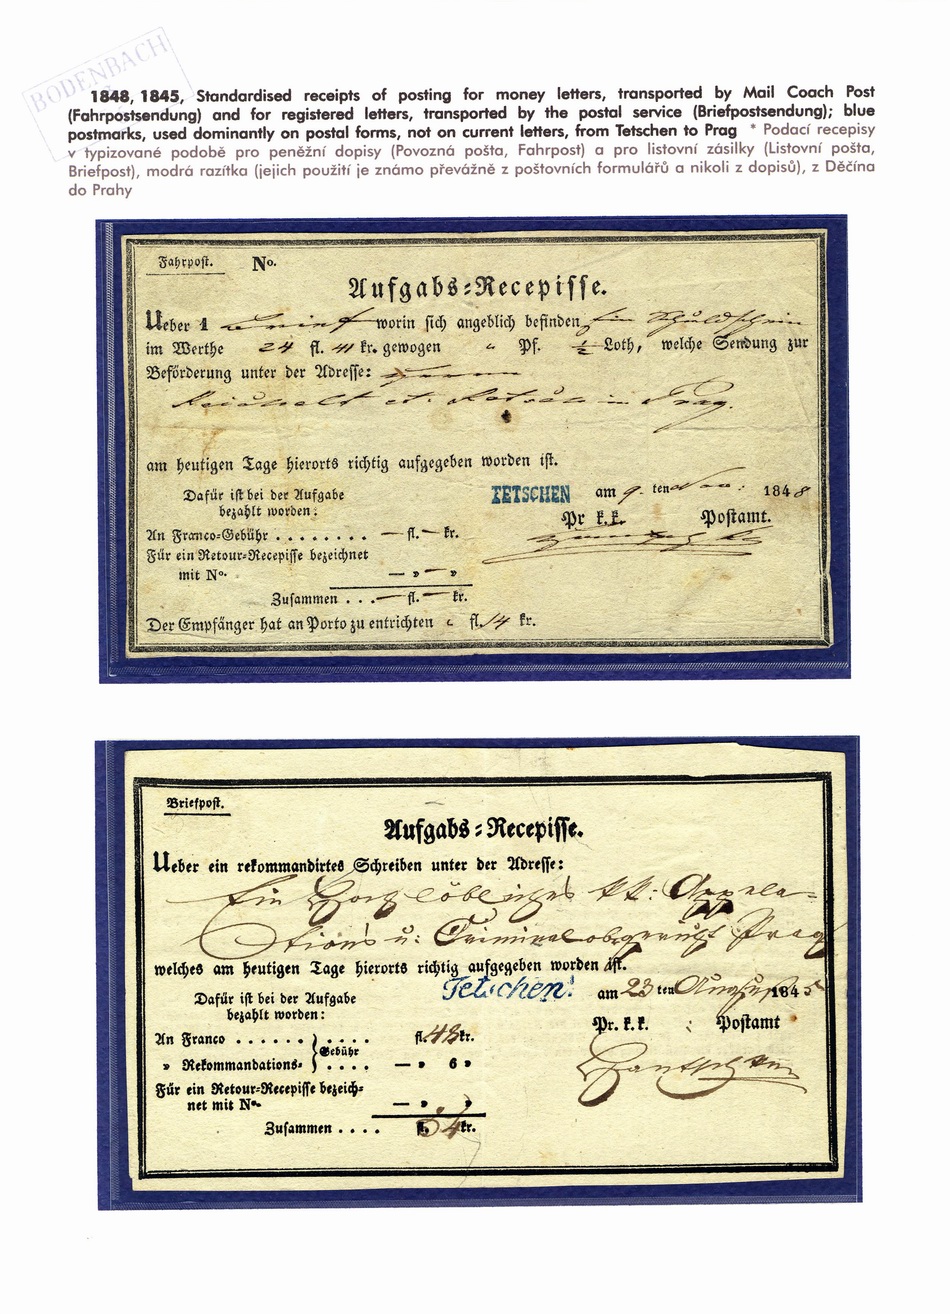 BODENBACH
1848, 1845, Standardised receipts of posting for money letters, transported by Mail Coach Post
(Fahrpostsendung) and for registered letters, transported by the postal service (Briefpostsendung); blue
postmarks, used dominantly on postal forms, not on current letters, from Tetschen to Prag * Podací recepisy
v typizované podobě pro peněžní dopisy (Povozná pošta, Fahrpost) a pro listovní zásilky (Listovní pošta,
Briefpost), modrá razítka (jejich použití je známo převážně z poštovních formulářů a nikoli z dopisů), z Děčína
do Prahy
Fahrpost. No.
Aufgabs=Recepisse.
Ueber 1 Brief worin sich angeblich befinden ein Schuldschein
im Werthe 24 fl. 41 kr. gewogen " Pf. ½ Loth, welche Sendung zur
Beförderung unter der Adresse: Herrn
in Prag.
am heutigen Tage hierorts richtig aufgegeben worden ist.
Dafür ist bei der Aufgabe
bezahlt worden:
TETSCHEN am 9. ten Nov: 1848
Pr k.k. Postamt.
An Franco=Gebühr ........ — fl. — kr.
Für ein Retour=Recepisse bezeichnet
mit No. — » — »
Zusammen ... — fl. — kr.
Der Empfänger hat an Porto zu entrichten " fl. 14 kr.
Briefpost.
Aufgabs=Recepisse.
Ueber ein rekommandirtes Schreiben unter der Adresse:
Ein Hochlöbliches kk: Appela=
tions u: Criminalobergericht Prag
welches am heutigen Tage hierorts richtig aufgegeben worden ist.
Tetschen! am 23 ten August 1845
Dafür ist bei der Aufgabe
bezahlt worden:
Pr. k. k. Postamt
An Franco } .... fl. 48 kr.
Gebühr
» Rekommandations= .... — » 6 »
Für ein Retour=Recepisse bezeich=
net mit No. — » »
Zusammen .... fl. 54 kr.